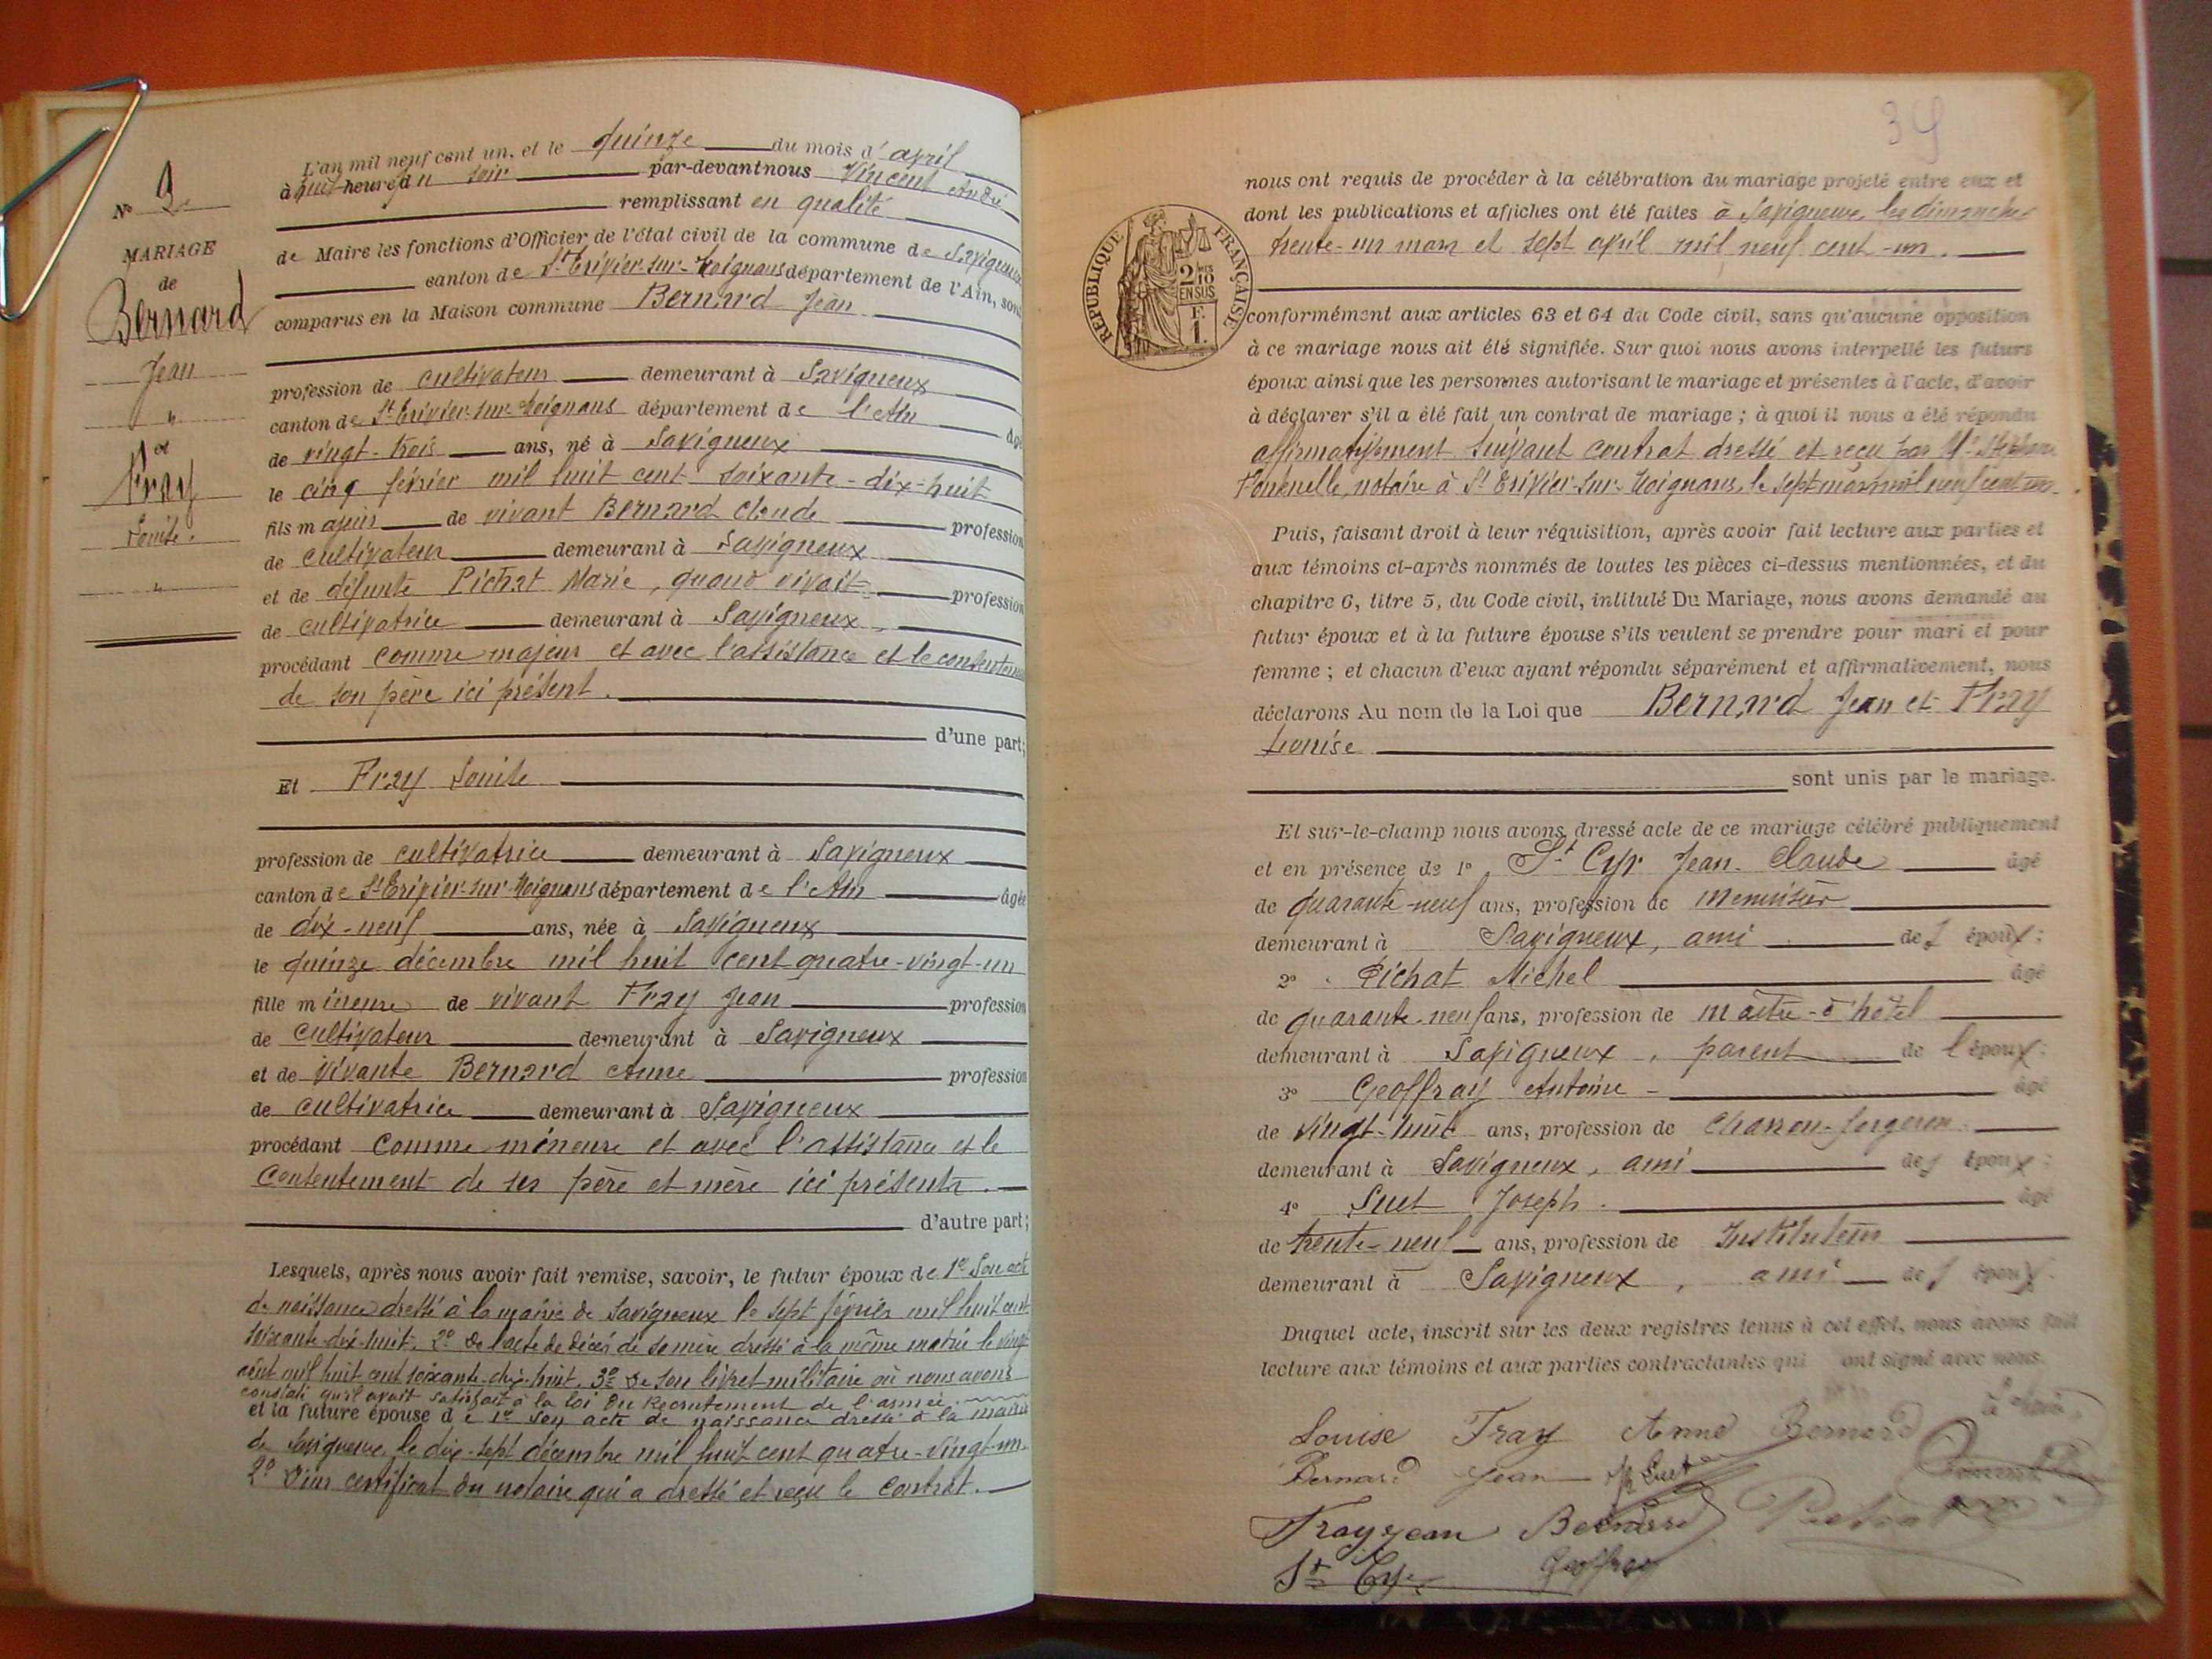 N° 2
MARIAGE
de
Bernard
Jean
"
et
Fray
Louise.
"
L'an mil neuf cent un, et le quinze du mois d' avril
à huit heures du soir par-devant nous Vincent André
remplissant en qualité
de Maire les fonctions d'Officier de l'état civil de la commune de Savigneux
canton de St Trivier-sur-Moignans département de l'Ain, sont
comparus en la Maison commune Bernard Jean
profession de cultivateur demeurant à Savigneux
canton de St Trivier-sur-Moignans département de l'Ain âgé
de vingt-trois ans, né à Savigneux
le cinq février mil huit cent soixante-dix-huit
fils majeur de vivant Bernard Claude profession
de cultivateur demeurant à Savigneux
et de défunte Pichat Marie, quand vivait profession
de cultivatrice demeurant à Savigneux.
procédant comme majeur et avec l'assistance et le consentement
de son père ici présent.
d'une part;
Et Fray Louise
profession de cultivatrice demeurant à Savigneux
canton de St Trivier-sur-Moignans département de l'Ain âgée
de dix-neuf ans, née à Savigneux
le quinze décembre mil huit cent quatre-vingt-un
fille mineure de vivant Fray Jean profession
de cultivateur demeurant à Savigneux
et de vivante Bernard Anne profession
de cultivatrice demeurant à Savigneux
procédant comme mineure et avec l'assistance et le
consentement de ses père et mère ici présents.
d'autre part;
Lesquels, après nous avoir fait remise, savoir, le futur époux de 1° Son acte
de naissance dressé à la mairie de Savigneux le sept février mil huit cent
soixante-dix-huit. 2° De l'acte de décès de sa mère dressé à la même mairie le vingt
août mil huit cent soixante-dix-huit. 3° De son livret militaire où nous avons
constaté qu'il avait satisfait à la loi du Recrutement de l'armée.
et la future épouse de 1° Son acte de naissance dressé à la mairie
de Savigneux le dix-sept décembre mil huit cent quatre-vingt-un.
2° D'un certificat du notaire qui a dressé et reçu le contrat.
39
RÉPUBLIQUE FRANÇAISE
2 10
EN SUS
F.
1.
nous ont requis de procéder à la célébration du mariage projeté entre eux et
dont les publications et affiches ont été faites à Savigneux les dimanches
trente-un mars et sept avril mil neuf cent-un.
conformément aux articles 63 et 64 du Code civil, sans qu'aucune opposition
à ce mariage nous ait été signifiée. Sur quoi nous avons interpellé les futurs
époux ainsi que les personnes autorisant le mariage et présentes à l'acte, d'avoir
à déclarer s'il a été fait un contrat de mariage ; à quoi il nous a été répondu
affirmativement suivant contrat dressé et reçu par Me
notaire à St Trivier-sur-Moignans, le sept mars mil neuf cent un.
Puis, faisant droit à leur réquisition, après avoir fait lecture aux parties et
aux témoins ci-après nommés de toutes les pièces ci-dessus mentionnées, et du
chapitre 6, titre 5, du Code civil, intitulé Du Mariage, nous avons demandé au
futur époux et à la future épouse s'ils veulent se prendre pour mari et pour
femme ; et chacun d'eux ayant répondu séparément et affirmativement, nous
déclarons Au nom de la Loi que Bernard Jean et Fray
Louise
sont unis par le mariage.
Et sur-le-champ nous avons dressé acte de ce mariage célébré publiquement
et en présence de 1° St Cyr Jean-Claude âgé
de quarante-neuf ans, profession de menuisier
demeurant à Savigneux, ami des époux ;
2° Pichat Michel âgé
de quarante-neuf ans, profession de maître-d'hôtel
demeurant à Savigneux, parent de l'époux ;
3° Geoffray Antoine âgé
de vingt-huit ans, profession de charron-forgeron
demeurant à Savigneux, ami des époux ;
4° Suet Joseph. âgé
de trente-neuf ans, profession de Instituteur
demeurant à Savigneux, ami des époux.
Duquel acte, inscrit sur les deux registres tenus à cet effet, nous avons fait
lecture aux témoins et aux parties contractantes qui ont signé avec nous.
Louise Fray Anne Bernard
Bernard Jean Suet
Fray Jean Bernard Pichat
St Cyr Geoffray